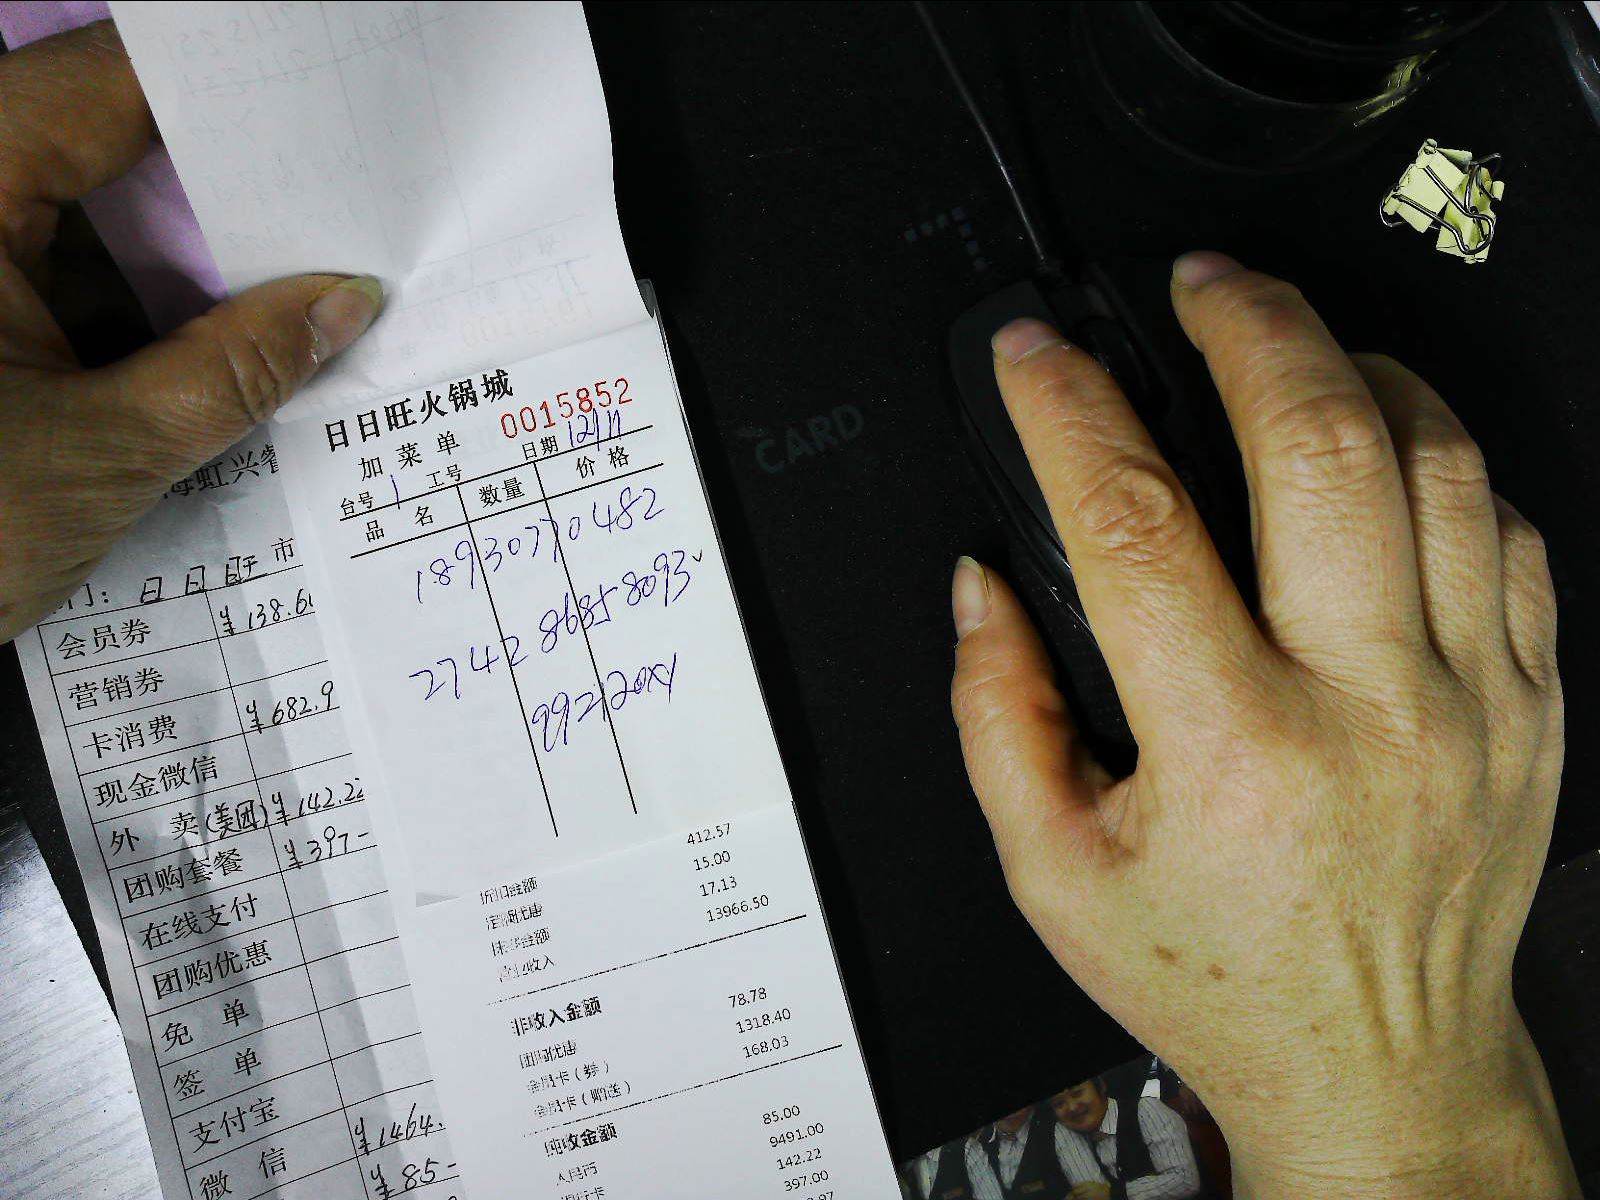 日日旺火锅城
0015852
加菜单
台号 1 工号 日期 12/11
品名 数量 价格
18930770482
27428685 8093
992120xy
海虹兴餐
门: 日日旺市
会员券
营销券
卡消费 ¥682.9
现金微信
外卖(美团) ¥142.22
团购套餐 ¥397-
在线支付
团购优惠
免单
签单
支付宝
微信 ¥1464.
¥85-
412.57
折扣金额 15.00
定额优惠 17.13
抹零金额 13966.50
营业收入
非收入金额
78.78
团购优惠 1318.40
会员卡(券) 168.03
会员卡(赠送)
纯收金额
85.00
人民币 9491.00
银行卡 142.22
397.00
CARD